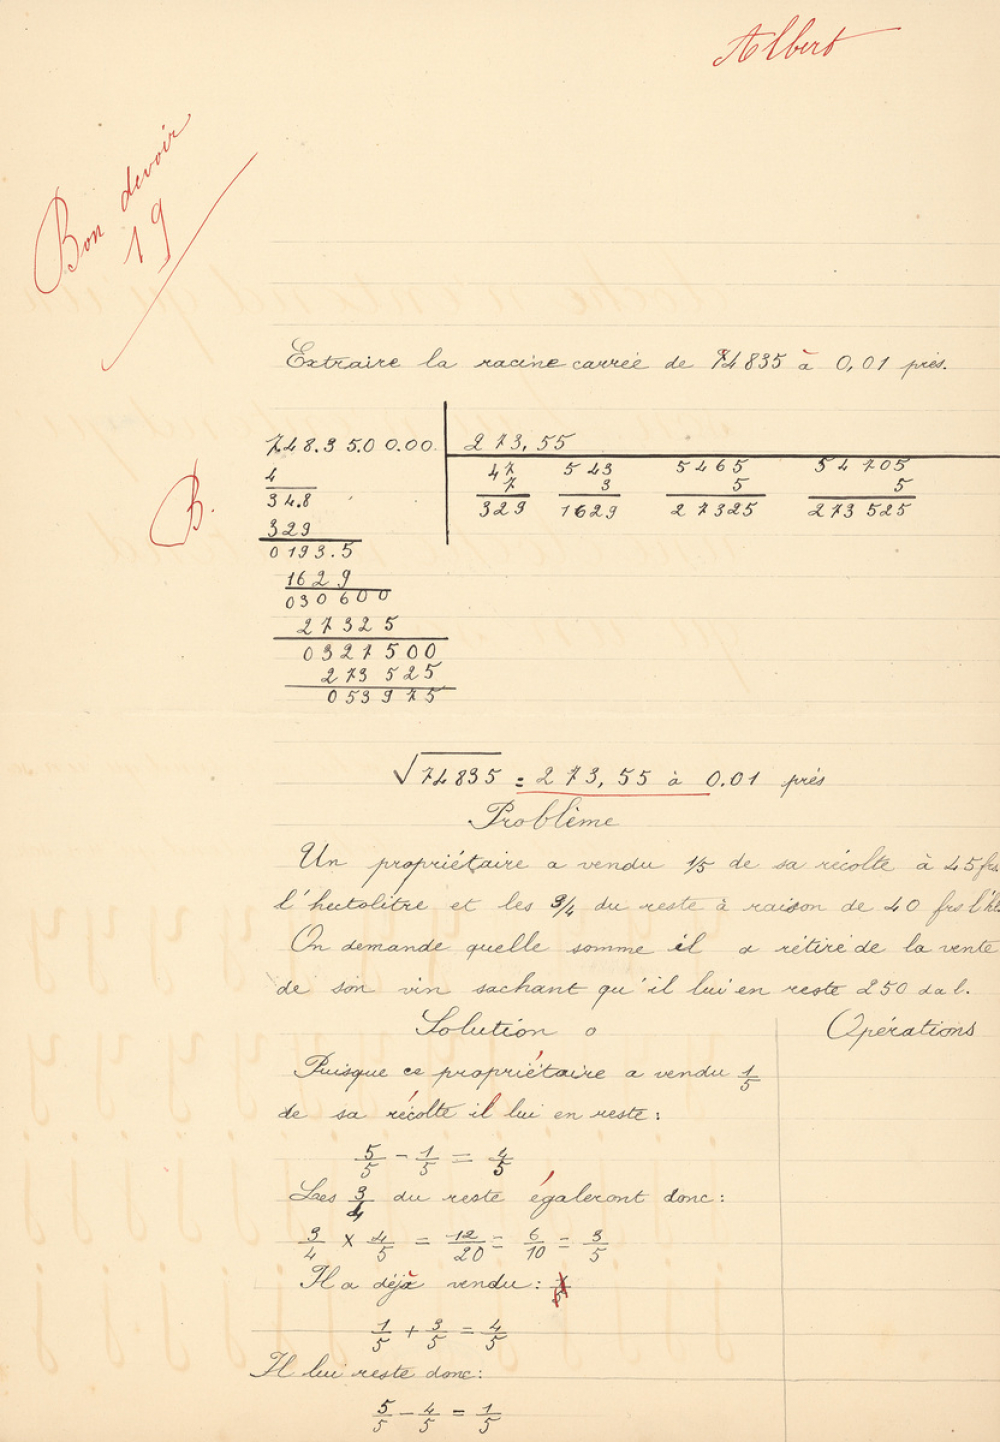 Albert
Bon devoir
19
Extraire la racine carrée de 74835 à 0,01 près.
7.48.35.00.00. 273,55
47 543 5465 54705
4 7 3 5 5
34.8 329 1629 27325 273525
B.
329
0193.5
1629
030600
27325
0327500
273525
053975
√74835 = 273,55 à 0.01 près
Problème
Un propriétaire a vendu 1/5 de sa récolte à 45 frs
l'hectolitre et les 3/4 du reste à raison de 40 frs l'hl
On demande quelle somme il a rétiré de la vente
de son vin sachant qu'il lui en reste 250 dal.
Solution o Opérations
Puisque ce propriétaire a vendu 1/5
de sa récolte il lui en reste :
5/5 - 1/5 = 4/5
Les 3/4 du reste égaleront donc :
3/4 x 4/5 = 12/20 = 6/10 = 3/5
Il a déjà vendu :
1/5 + 3/5 = 4/5
Il lui reste donc :
5/5 - 4/5 = 1/5